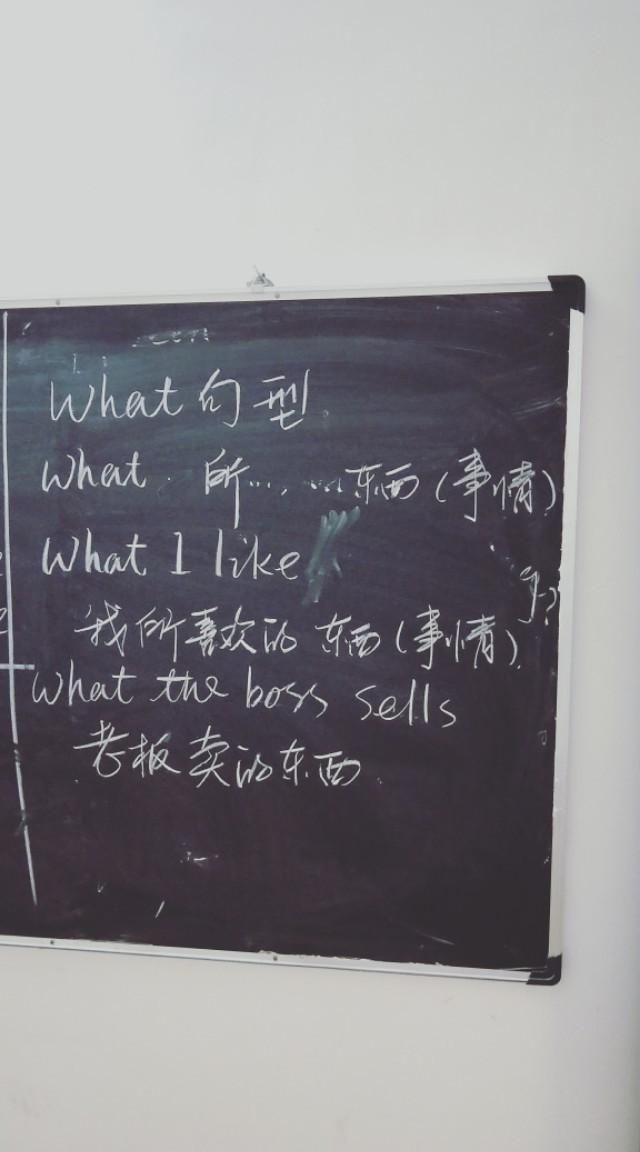 What 句型
What. 所... ...东西(事情)
What I like
我所喜欢的 东西(事情)
What the boss sells
老板卖的东西